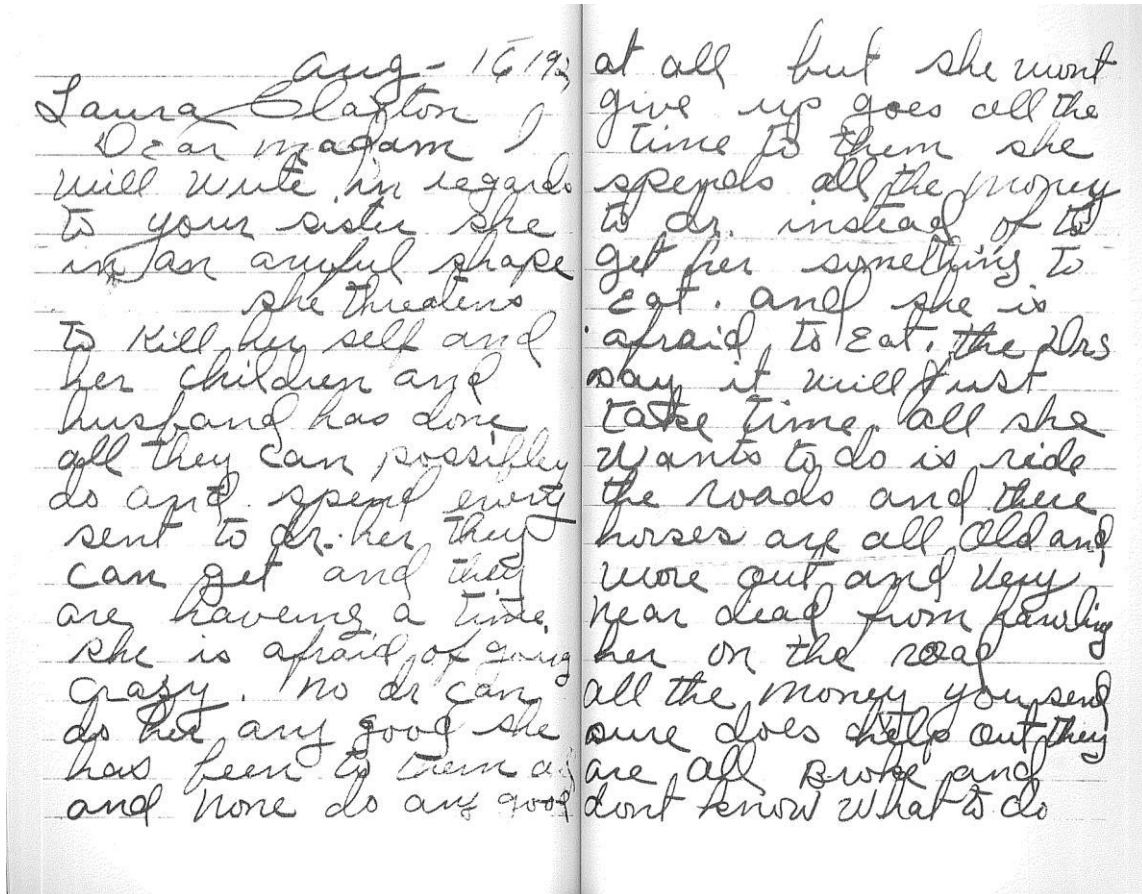 Aug - 16 192
Laura Claxton
Dear madam I
will write in regards
to your sister she
in an awful shape
she threatens
to kill her self and
her children and
husband has done
all they can possibley
do and spend every
sent to dr. her they
can get and they
are haveing a time
she is afraid of going
crazy. no dr can
do her any good she
has been to them all
and none do any good
at all but she wont
give up goes all the
time to them she
spends all the money
to dr. instead of to
get her something to
Eat. and she is
afraid to Eat. the Drs
say it will Just
take time. all she
wants to do is ride
the roads and there
horses are all old and
wore out and very
near dead from hawling
her on the road
all the money you send
sure does help out they
are all Broke and
dont know what to do